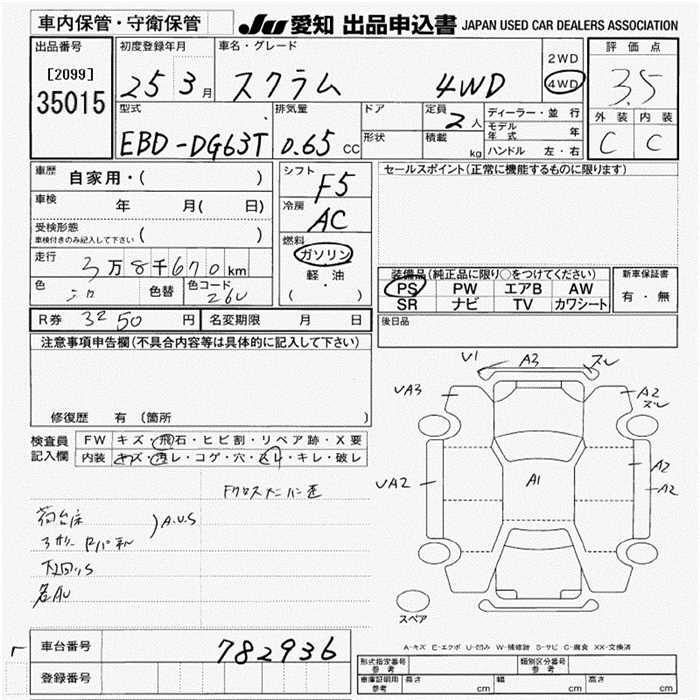 車内保管・守衛保管
JU 愛知 出品申込書 JAPAN USED CAR DEALERS ASSOCIATION
出品番号
[2099]
35015
初度登録年月
25 3月
車名・グレード
スクラム 4WD
2WD
4WD
評価点
3.5
外装 内装
C C
型式
EBD-DG63T
排気量
0.65 cc
ドア
形状
定員
2人
積載
kg
ディーラー・並行
モデル年式 年
ハンドル 左・右
車歴
自家用・( )
車検
年 月( 日)
受検形態
車検付きのみ記入して下さい ( )
走行
3万8千670km
色
色替
色コード
26U
シフト
F5
冷房
AC
燃料
ガソリン
軽・油
( )
セールスポイント(正常に機能するものに限ります)
装備品(純正品に限り○をつけてください)
PS PW エアB AW
SR ナビ TV カワシート
新車保証書
有・無
後日品
R券 3250 円
名変期限 月 日
注意事項申告欄(不具合内容等は具体的に記入して下さい)
修復歴 有(箇所 )
検査員記入欄
FW キズ・飛石・ヒビ割・リペア跡・X要
内装 キズ・汚レ・コゲ・穴・スレ・キレ・破レ
荷台床
A.U.S
下回りS
各AU
V1 A3 スレ
UA3
A2
スレ
UA2
A1
A2
A2
スペア
A-キズ E-エクボ U-凹み W-補修跡 S-サビ C-腐食 XX-交換済
車台番号 782936
登録番号
形式指定番号
参考
類別区分番号
参考
車庫証明用
参考
長さ cm 幅 cm 高さ cm